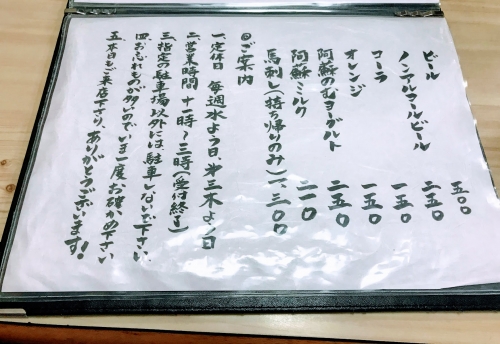 ビール 五〇〇
ノンアルコールビール 二五〇
コーラ 一五〇
オレンジ 一五〇
阿蘇のむヨーグルト 二五〇
阿蘇ミルク 二一〇
馬刺し(持ち帰りのみ)一、三〇〇
◎ご案内
一、定休日 毎週水よう日、第三木よう日
二、営業時間 十一時〜三時(受付終了)
三、指定の駐車場以外には、駐車しないで下さい
四、お忘れものが多いので、いま一度お確かめ下さい
五、本日もご来店下さり、ありがとうございます!